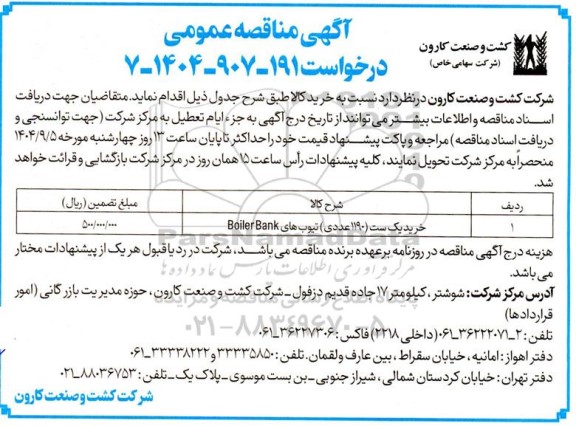 آگهی مناقصه عمومی
درخواست ۱۹۱-۹۰۷-۱۴۰۴-۷
کشت و صنعت کارون
(شرکت سهامی خاص)
شرکت کشت و صنعت کارون در نظر دارد نسبت به خرید کالا طبق شرح جدول ذیل اقدام نماید. متقاضیان جهت دریافت
اسناد مناقصه و اطلاعات بیشتر می توانند از تاریخ درج آگهی به جزء ایام تعطیل به مرکز شرکت (جهت توانسنجی و
دریافت اسناد مناقصه) مراجعه و پاکت پیشنهاد قیمت خود را حداکثر تا پایان ساعت ۱۳ روز چهارشنبه مورخه ۱۴۰۴/۹/۵
منحصرا به مرکز شرکت تحویل نمایند، کلیه پیشنهادات رأس ساعت ۱۵ همان روز در مرکز شرکت بازگشایی و قرائت خواهد
شد.
ردیف شرح کالا مبلغ تضمین (ریال)
۱ خرید یک ست (۱۱۹۰ عددی) تیوب های Boiler Bank ۵۰۰/۰۰۰/۰۰۰
هزینه درج آگهی مناقصه در روزنامه بر عهده برنده مناقصه می باشد، شرکت در رد یا قبول هر یک از پیشنهادات مختار
می باشد.
آدرس مرکز شرکت: شوشتر، کیلومتر ۱۷ جاده قدیم دزفول - شرکت کشت و صنعت کارون، حوزه مدیریت بازرگانی (امور
قراردادها)
تلفن: ۲-۳۶۲۲۲۰۷۱-۰۶۱ (داخلی ۲۲۱۸) فاکس: ۳۶۲۲۷۳۰۶-۰۶۱
دفتر اهواز: امانیه، خیابان سقراط، بین عارف و لقمان. تلفن: ۳۳۳۳۵۸۵۰ و ۳۳۳۳۸۲۲۲-۰۶۱
دفتر تهران: خیابان کردستان شمالی، شیراز جنوبی - بن بست موسوی - پلاک یک - تلفن: ۸۸۰۳۶۷۵۳-۰۲۱
شرکت کشت و صنعت کارون
ParsNamadData
مرکز فرآوری اطلاعات پارس نماد داده ها
پایگاه اطلاع رسانی مناقصه و مزایده
۰۲۱-۸۸۳۴۹۶۷۰-۵